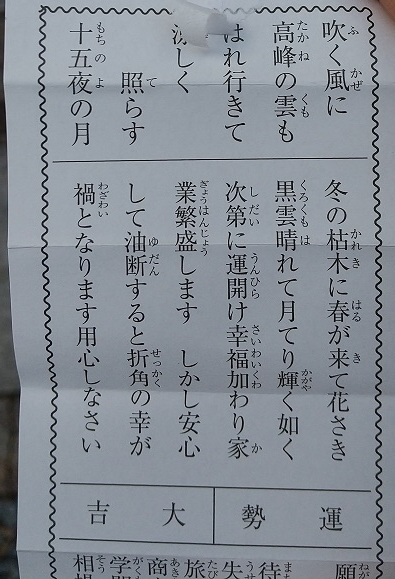 吹く風に
高峰の雲も
はれ行きて
涼しく
照らす
十五夜の月
冬の枯木に春が来て花さき
黒雲晴れて月てり輝く如く
次第に運開け幸福加わり家
業繁盛します しかし安心
して油断すると折角の幸が
禍となります用心しなさい
運勢
大吉
願
待
失
旅
商
学問
相場